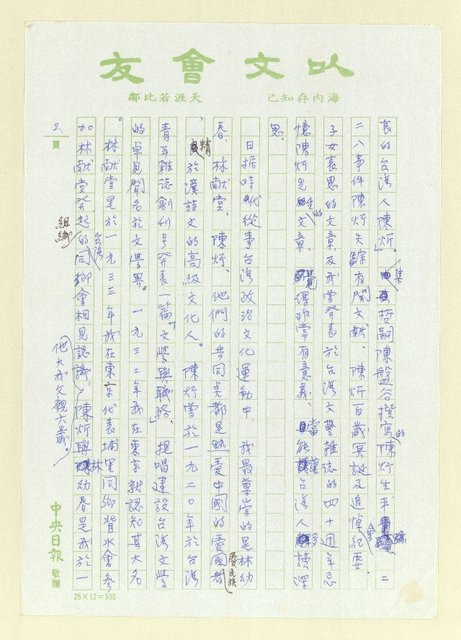 以文會友
海內存知己 天涯若比鄰
裏的台灣人陳炘」集 哲嗣陳盤谷撰寫的陳炘生平、二
二八事件陳炘失踪有關文献、陳炘百歲冥誕及追悼紀念會
子女哀思的文章及我曾發表於台湾文藝雜誌的四十週年忌
憶陳炘先生的文章、覺得非常有意義、當能讓台湾人讀深
思。
日据時代從事台湾政治文化運動中 我最尊崇的是林幼
春、林献堂、陳炘、他們的共同点都是熱愛中國的愛國者愛民族
精於漢詩文的高級文化人。陳炘曾於一九二〇年於台湾
青年雜誌創刊号發表一篇「文學與職務」提唱建設台湾文學
的卓見聞名於文學界。一九三二年我在東京就認知其大名。
林献堂是於一九三三年我在東京代表埔里同鄉背水會參
加林献堂發起組織的台湾同鄉會相見認識、陳炘與林幼春是我於一
他大我父親六歲。
2 頁
中央日報 敬贈
25×12=300